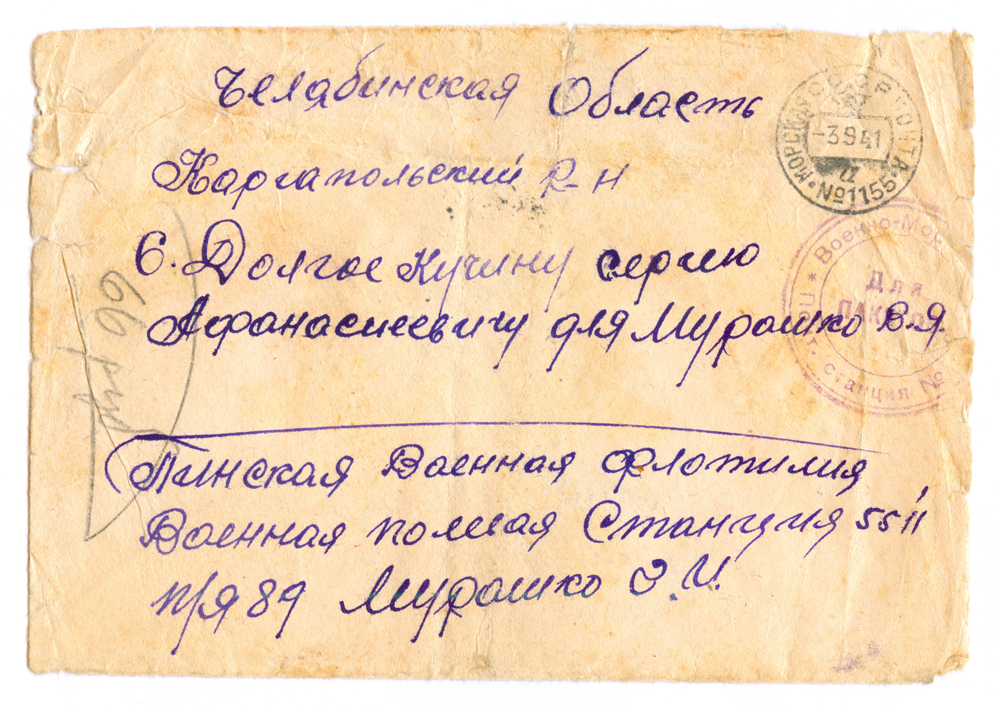 Челябинская Область
Каргапольский Р-н
С. Долгое Кучину сергию
Афанасиевичу для Мурашко В.Я.
Пинская Военная флотилия
Военная полевая Станция 5511
п/я 89 Мурашко Э.И.
МОРСКАЯ ПОЧТА
СССР
-3.9.41
№1155
Военно-Мор
Для
станция №